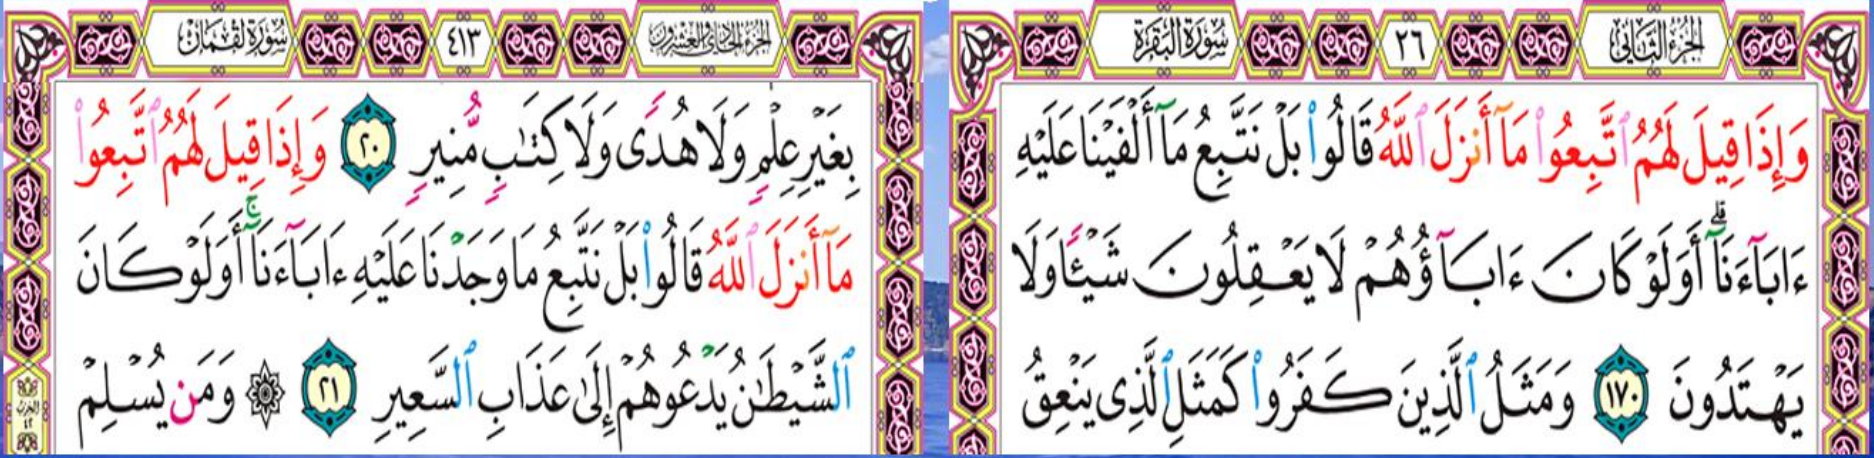 الجزء الثاني
٢٦
سورة البقرة
وَإِذَا قِيلَ لَهُمُ ٱتَّبِعُوا۟ مَآ أَنزَلَ ٱللَّهُ قَالُوا۟ بَلْ نَتَّبِعُ مَآ أَلْفَيْنَا عَلَيْهِ
ءَابَآءَنَآ ۗ أَوَلَوْ كَانَ ءَابَآؤُهُمْ لَا يَعْقِلُونَ شَيْـًٔا وَلَا
يَهْتَدُونَ ١٧٠ وَمَثَلُ ٱلَّذِينَ كَفَرُوا۟ كَمَثَلِ ٱلَّذِى يَنْعِقُ
الجزء الحادي والعشرون
٤١٣
سورة لقمان
بِغَيْرِ عِلْمٍ وَلَا هُدًى وَلَا كِتَـٰبٍ مُّنِيرٍ ٢٠ وَإِذَا قِيلَ لَهُمُ ٱتَّبِعُوا۟
مَآ أَنزَلَ ٱللَّهُ قَالُوا۟ بَلْ نَتَّبِعُ مَا وَجَدْنَا عَلَيْهِ ءَابَآءَنَآ ۚ أَوَلَوْ كَانَ
ٱلشَّيْطَـٰنُ يَدْعُوهُمْ إِلَىٰ عَذَابِ ٱلسَّعِيرِ ٢١ ۞ وَمَن يُسْلِمْ
الحزب
٤٢